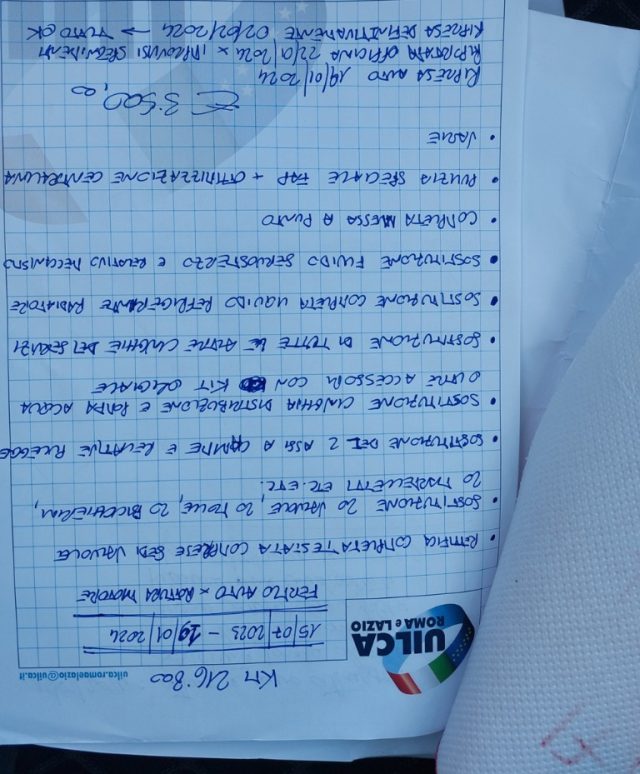 uilca.romaelazio@uilca.it
KM 216.800
UILCA
ROMA e LAZIO
15/07/2023 - 19/01/2024
FERMO AUTO X ROTTURA MOTORE
• RETTIFICA COMPLETA TESTATA COMPRESE SEDI VALVOLE
• SOSTITUZIONE 20 VALVOLE, 20 MOLLE, 20 BICCHIERINI,
20 MARTELLETTI ETC. ETC.
• SOSTITUZIONE DEI 2 ASSI A CAMME E RELATIVE PULEGGE
• SOSTITUZIONE CINGHIA DISTRIBUZIONE E POMPA ACQUA
OLTRE ACCESSORI CON KIT ORIGINALE
• SOSTITUZIONE DI TUTTE LE ALTRE CINGHIE DEI SERVIZI
• SOSTITUZIONE COMPLETA LIQUIDO REFRIGERANTE RADIATORE
• SOSTITUZIONE FLUIDO SERVOSTERZO E RELATIVO MECCANISMO
• COMPLETA MESSA A PUNTO
• PULIZIA SPECIALE FAP + OTTIMIZZAZIONE CENTRALINA
• VARIE
€ 3.500,00
RIPRESA AUTO 19/01/2024
RIPORTATA OFFICINA 22/01/2024 X IMPROVVISI SPEGNIMENTI
RIPRESA DEFINITIVAMENTE 02/02/2024 → TUTTO OK